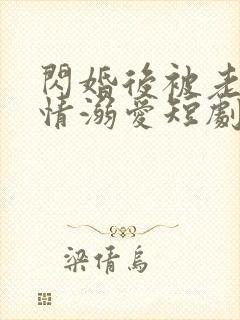 閃婚後被老
情溺愛短劇
梁倩烏